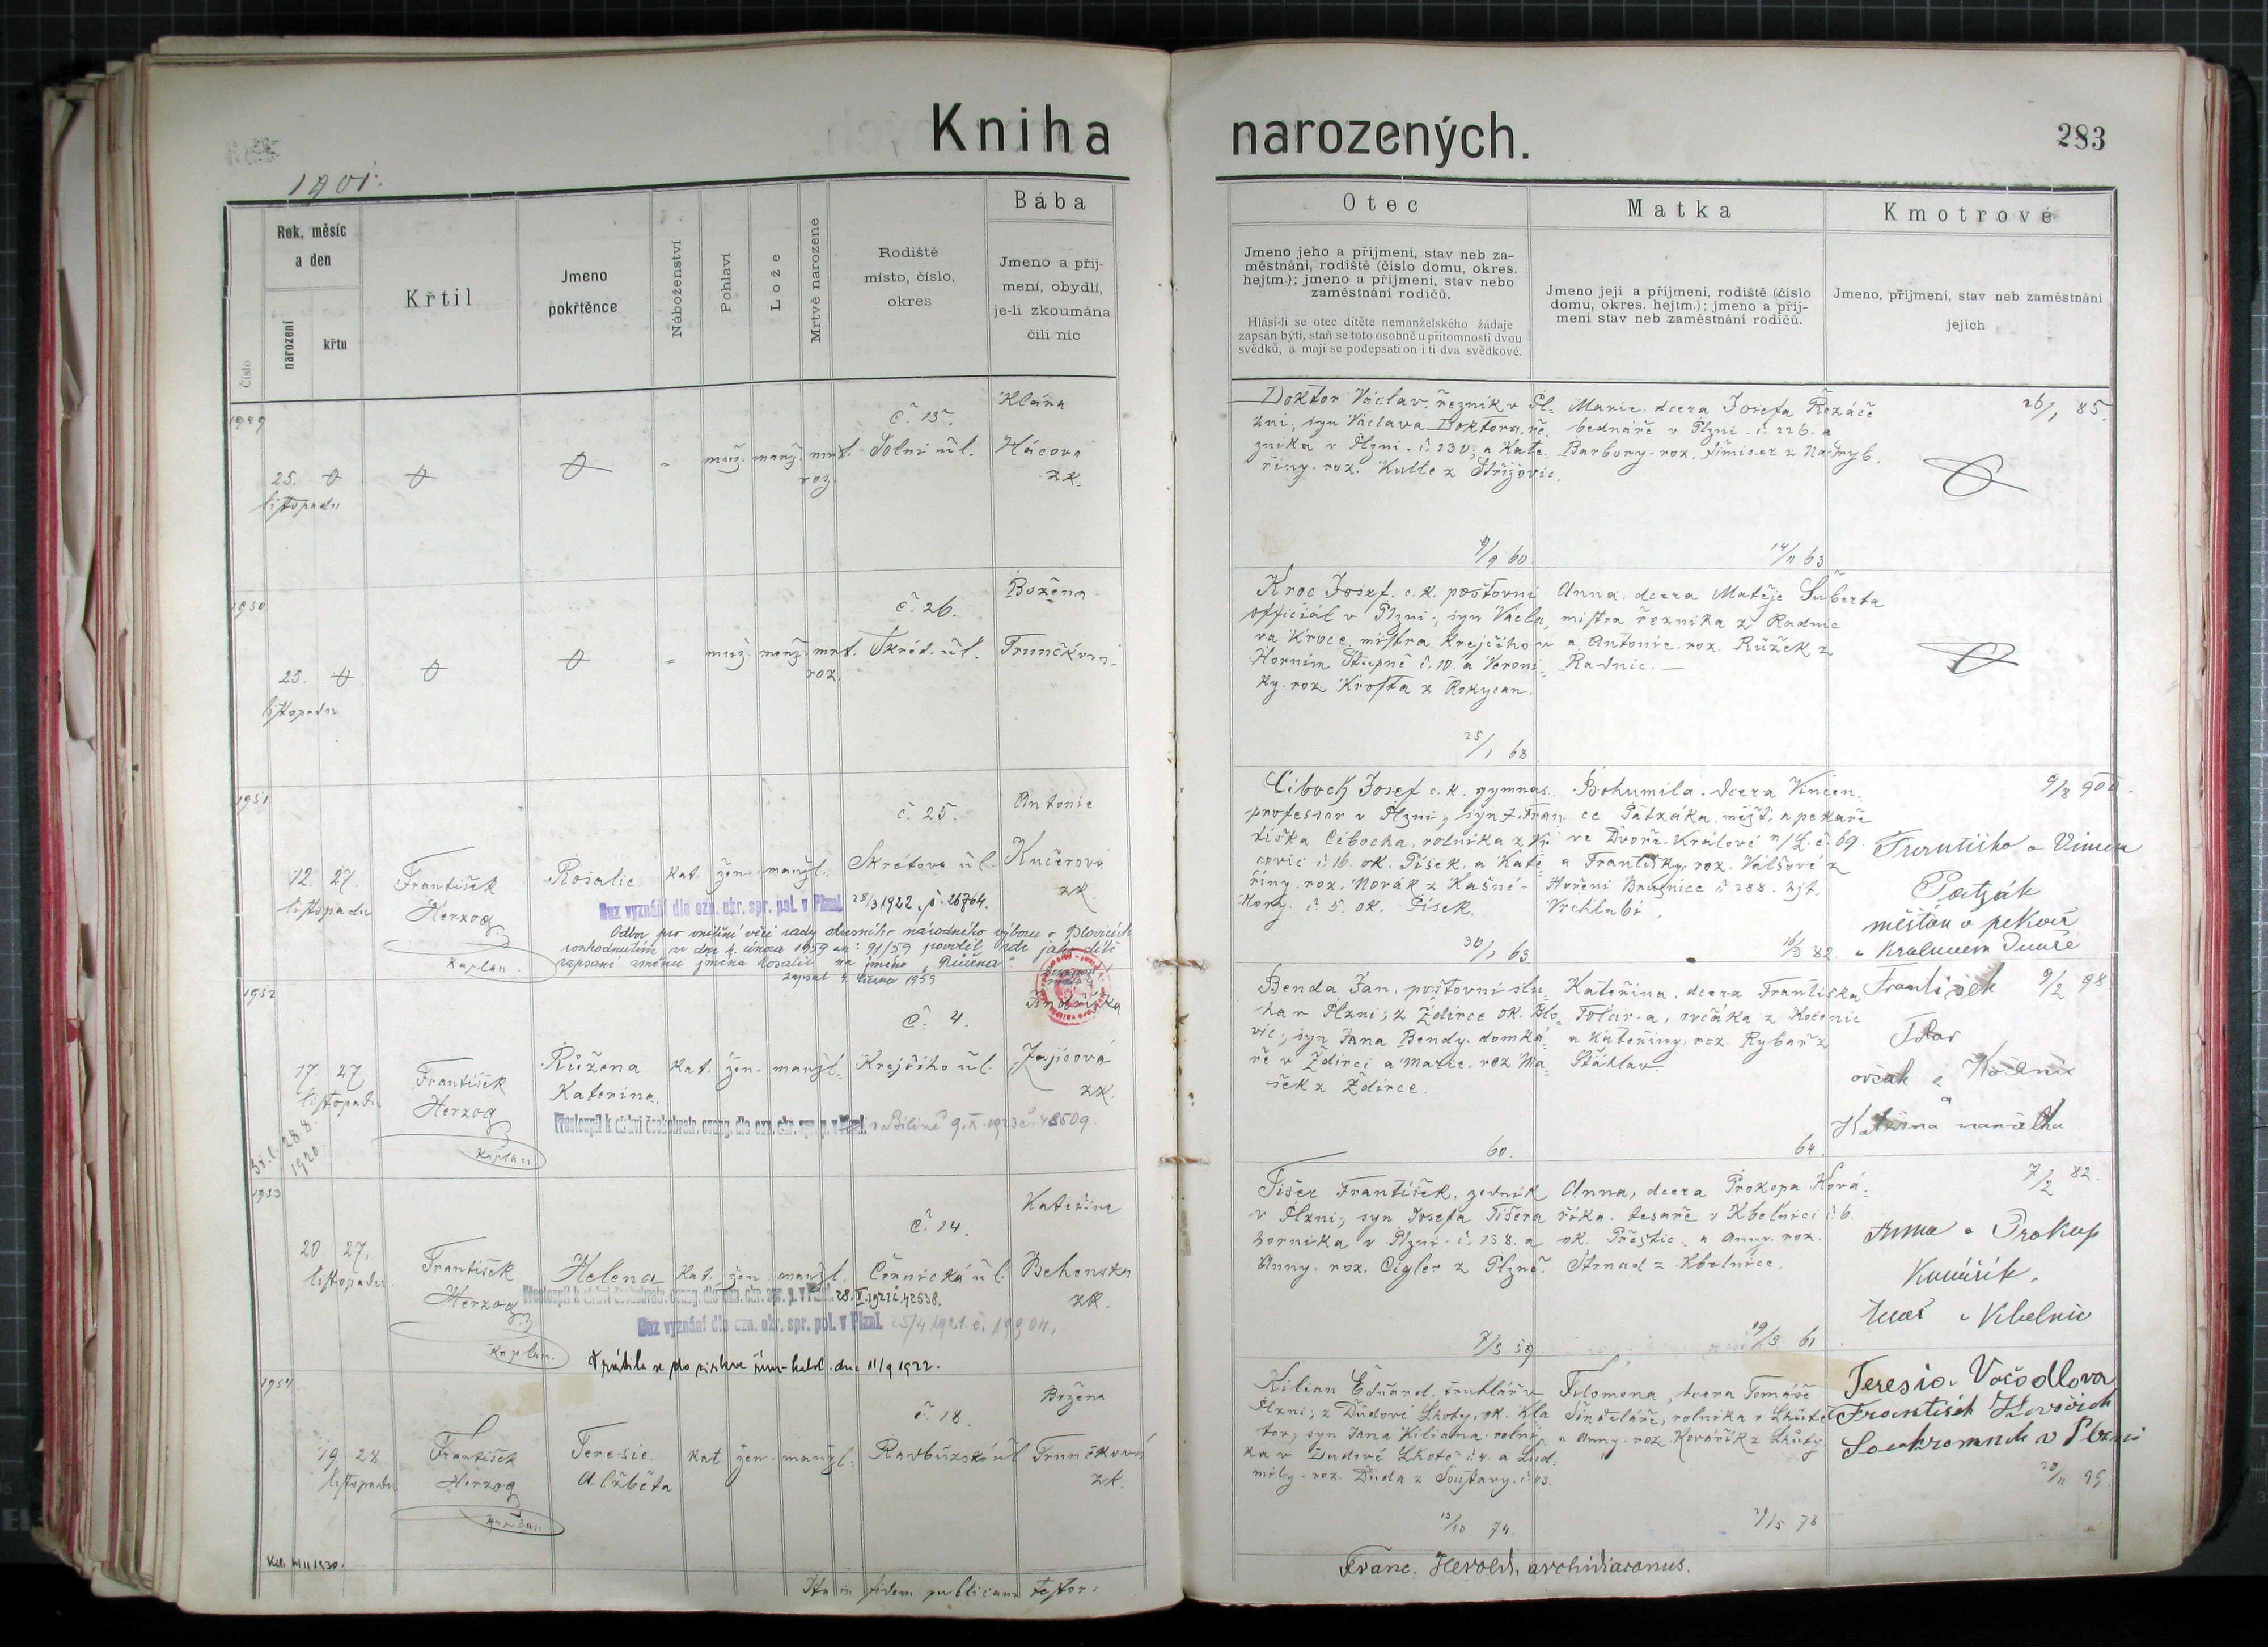 Kniha
narozených.
283
1901.
Číslo
Rok, měsíc
a den
narození
křtu
Křtil
Jmeno
pokřtěnce
Náboženství
Pohlaví
Lože
Mrtvě narozené
Rodiště
místo, číslo,
okres
Bába
Jmeno a příj-
mení, obydlí,
je-li zkoumána
čili nic
Otec
Jmeno jeho a příjmení, stav neb za-
městnání, rodiště (číslo domu, okres.
hejtm.); jmeno a příjmení, stav nebo
zaměstnání rodičů.
Hlásí-li se otec dítěte nemanželského žádaje
zapsán býti, staň se toto osobně u přítomnosti dvou
svědků, a mají se podepsati on i ti dva svědkové.
Matka
Jmeno její a příjmení, rodiště (číslo
domu, okres. hejtm.); jmeno a příj-
mení stav neb zaměstnání rodičů.
Kmotrové
Jmeno, příjmení, stav neb zaměstnání
jejich
25.
listopadu
muž. manž. mrt.
roz.
č. 15.
Solní ul.
Hácova
zk.
Doktor Václav, řezník v Pl-
zni, syn Václava Doktora, ře-
zníka v Plzni č. 130, a Kate-
řiny roz. Kutte z Střížovic.
9/9 60
Marie, dcera Josefa Řezáče
bednáře v Plzni č. 226. a
Barbory roz.
14/11 63
26/1 85.
1950
25.
listopadu
muž. manž. mrt.
roz.
č. 26.
Škrét. ul.
Božena
Trunčková
Kroc Josef, c. k. poštovní
officiál v Plzni, syn Václa-
va Kroce, mistra krejčího v
Horním Stupně č. 10. a Veroni-
ky roz. Krofta z Rokycan.
25/1 68
Anna, dcera Matěje Šuberta
mistra řezníka z Radnic
a Antonie roz. Růžek z
Radnic.
1951
12. 27.
listopadu
František
Herzog
kaplan.
Rosalie
kat. žen. manžl.
č. 25.
Skrétova ul.
Antonie
Kučerová
zk.
Bez vyznání dle ozn. okr. spr. pol. v Plzni 28/3 1922, č. 26764.
Odbor pro vnitřní věci rady okresního národního výboru v Blovicích
rozhodnutím ze dne 4. února 1959 zn: 91/59 povolil zde jako dítě
zapsané změnu jména Rosalie na jméno "Růžena".
Ciboch Josef c. k. gymnas.
professor v Plzni, syn Fran-
tiška Cibocha, rolníka z
covic č. 16. ok. Písek, a Kate-
řiny roz. Novák z Kašné-
Hory č. 5. ok. Písek.
30/1 63.
Bohumila, dcera Vincen-
ce Patzáka, měšť. a pekaře
ve Dvoře Králové n/L. č. 69.
a Františky roz. Válšové z
Hoření Brusnice č. 288. hjt.
Vrchlabí.
16/3 82.
9/8 900.
Patzák
měšťan a pekař
v Králové Dvoře
1952
17. 27.
listopadu
28. 8.
1920.
František
Herzog
kaplan
Růžena
Kateřina.
kat. žen. manžl.
č. 4.
Krejčího ul.
Jindřiška
Zajícová
zk.
Přestoupil k církvi českobratr. evang. dle ozn. okr. spr. p. v Bílině 9. X. 1923 č. 48509.
Benda Jan, poštovní slu-
ha v Plzni; z Ždírce ok. Blo-
vic; syn Jana Bendy domká-
ře v Ždírci a Marie roz Ma-
šek z Ždírce.
60.
Kateřina, dcera Františka
Tolar-a, ovčáka z Kočenic
a Kateřiny roz. Rybář z
Šťáhlav
64.
9/2 98.
František
ovčák z
Kateřina manželka
1953
20. 27.
listopadu
František
Herzog
kaplan.
Helena
kat. žen. manžl.
č. 14.
Černická ul.
Kateřina
Behenska
zk.
Přestoupil k církvi českobratr. evang. dle ozn. okr. spr. p. v Plzni 28. X. 1921 č. 42538.
Bez vyznání dle ozn. okr. spr. pol. v Plzni 25/4 1921. č. 19304.
Vrátila se do církve řím-katol. dne 11/9 1922.
Tišer František, zedník
v Plzni, syn Josefa Tišera
horníka v Plzni č. 138. a
Anny roz. Cigler z Plzně.
7/5 59
Anna, dcera Prokopa Ková-
říka, tesaře v Kbelnici č. 6.
ok. Přeštic, a Anny roz.
Strnad z Kbelnice.
19/3 61
7/2 82.
Anna a Prokop
Kovářík,
tesař v Kbelnici
1954
19. 28
listopadu
František
Herzog
kaplan
Teresie
Alžběta
kat. žen. manžl.
č. 18.
Radbúzská ul
Božena
Trunčková
zk.
Kilian Eduard, truhlář v
Plzni; z Dudové Lhoty, ok. Kla-
tov; syn Jana Kiliana, rolní-
ka v Dudové Lhotě č. 4. a Lud-
mily roz. Duda z
13/10 74.
Filomena, dcera Tomáše
Šindeláře, rolníka v Lhůtě
a Anny roz. Kovářík z Lhůty.
29/5 78
Teresia Vočodlova
František
Soukromník v Plzni
20/11 99
Ita in fidem publicam testor:
Franc. Herold, archidiaconus.